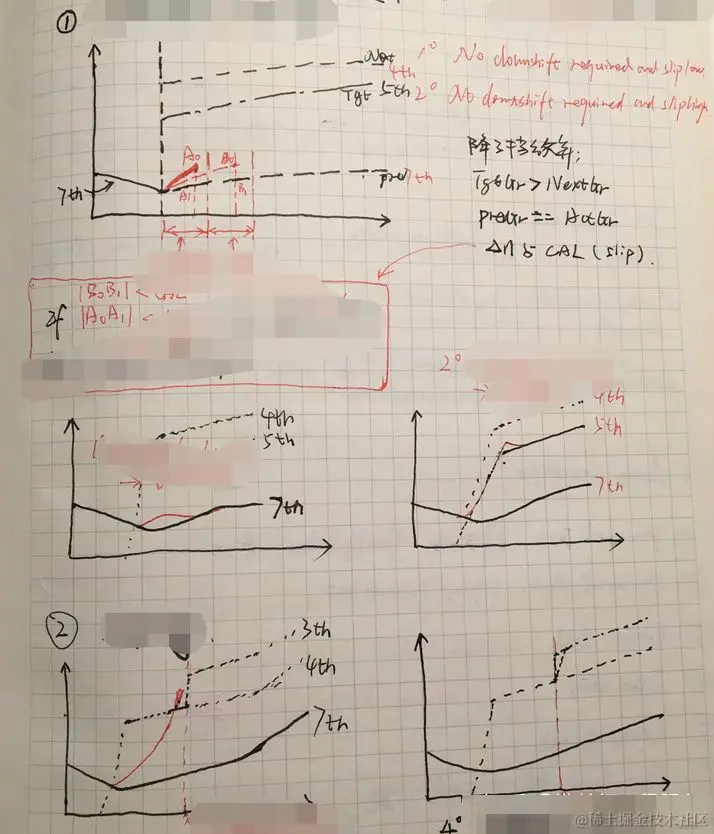 ①
Nxt 4th
1° No downshift required and slip low.
Tgt 5th
2° No downshift required and sliphigh
7th
A0
A1
B0
B1
pre 7th
降了挡
Tgtgr > Nextgr
pregr == Actgr
Δn 与 CAL (slip).
If
|B0B1| <
|A0A1| <
1°
4th
5th
7th
2°
4th
5th
7th
②
3th
4th
7th
4°
@稀土掘金技术社区